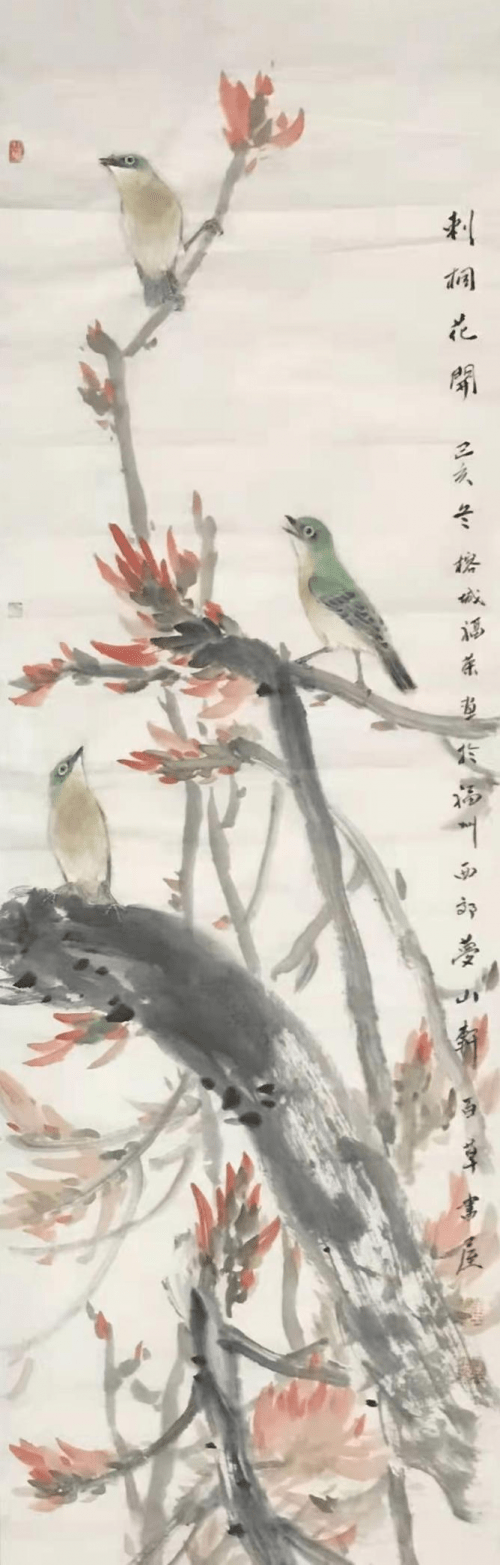 刺桐花開 己亥冬榕城福荣画於福州西郊夢山軒百草書屋